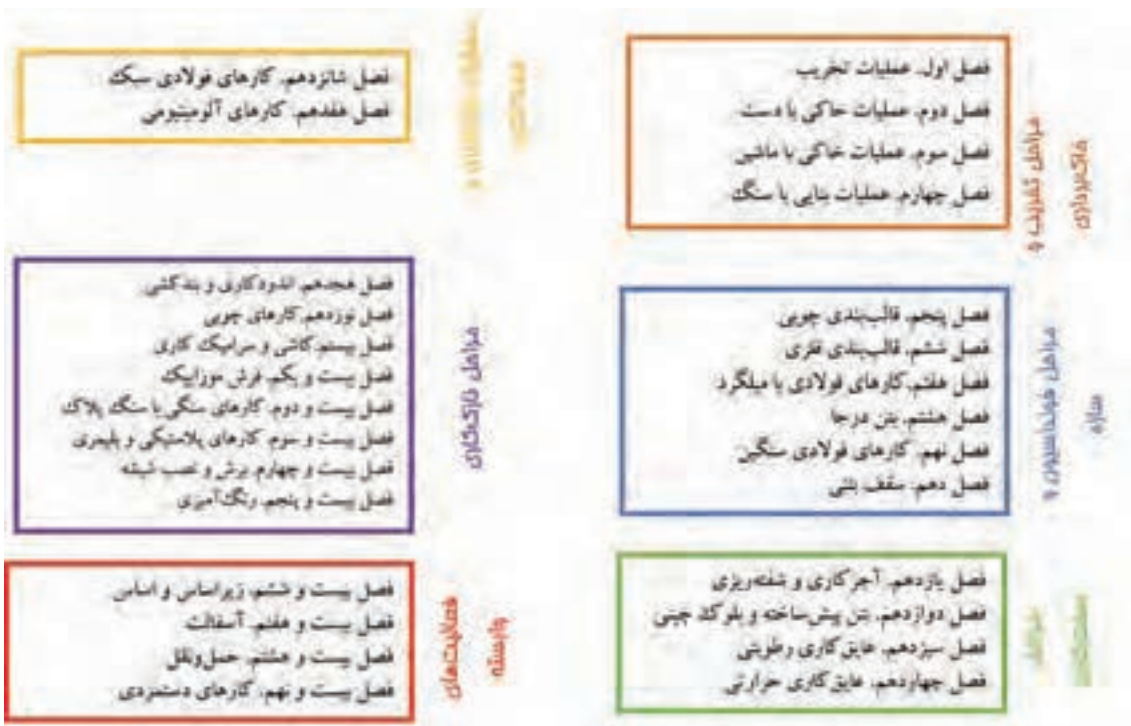 مراحل تخریب و
خاکبرداری
فصل اول. عملیات تخریب
فصل دوم. عملیات خاکی با دست
فصل سوم. عملیات خاکی با ماشین
فصل چهارم. عملیات بنایی با سنگ
مراحل فونداسیون و
سازه
فصل پنجم. قالب‌بندی چوبی
فصل ششم. قالب‌بندی فلزی
فصل هفتم. کارهای فولادی با میلگرد
فصل هشتم. بتن درجا
فصل نهم. کارهای فولادی سنگین
فصل دهم. سقف بتنی
فصل یازدهم. آجرکاری و شفته‌ریزی
فصل دوازدهم. بتن پیش‌ساخته و بلوک چینی
فصل سیزدهم. عایق‌کاری رطوبتی
فصل چهاردهم. عایق‌کاری حرارتی
فصل شانزدهم. کارهای فولادی سبک
فصل هفدهم. کارهای آلومینیومی
مراحل نازک‌کاری
فصل هجدهم. اندودکاری و بندکشی
فصل نوزدهم. کارهای چوبی
فصل بیستم. کاشی و سرامیک کاری
فصل بیست و یکم. فرش موزاییک
فصل بیست و دوم. کارهای سنگی با سنگ پلاک
فصل بیست و سوم. کارهای پلاستیکی و پلیمری
فصل بیست و چهارم. برش و نصب شیشه
فصل بیست و پنجم. رنگ‌آمیزی
فعالیت‌های
وابسته
فصل بیست و ششم. زیراساس و اساس
فصل بیست و هفتم. آسفالت
فصل بیست و هشتم. حمل‌ونقل
فصل بیست و نهم. کارهای دستمزدی